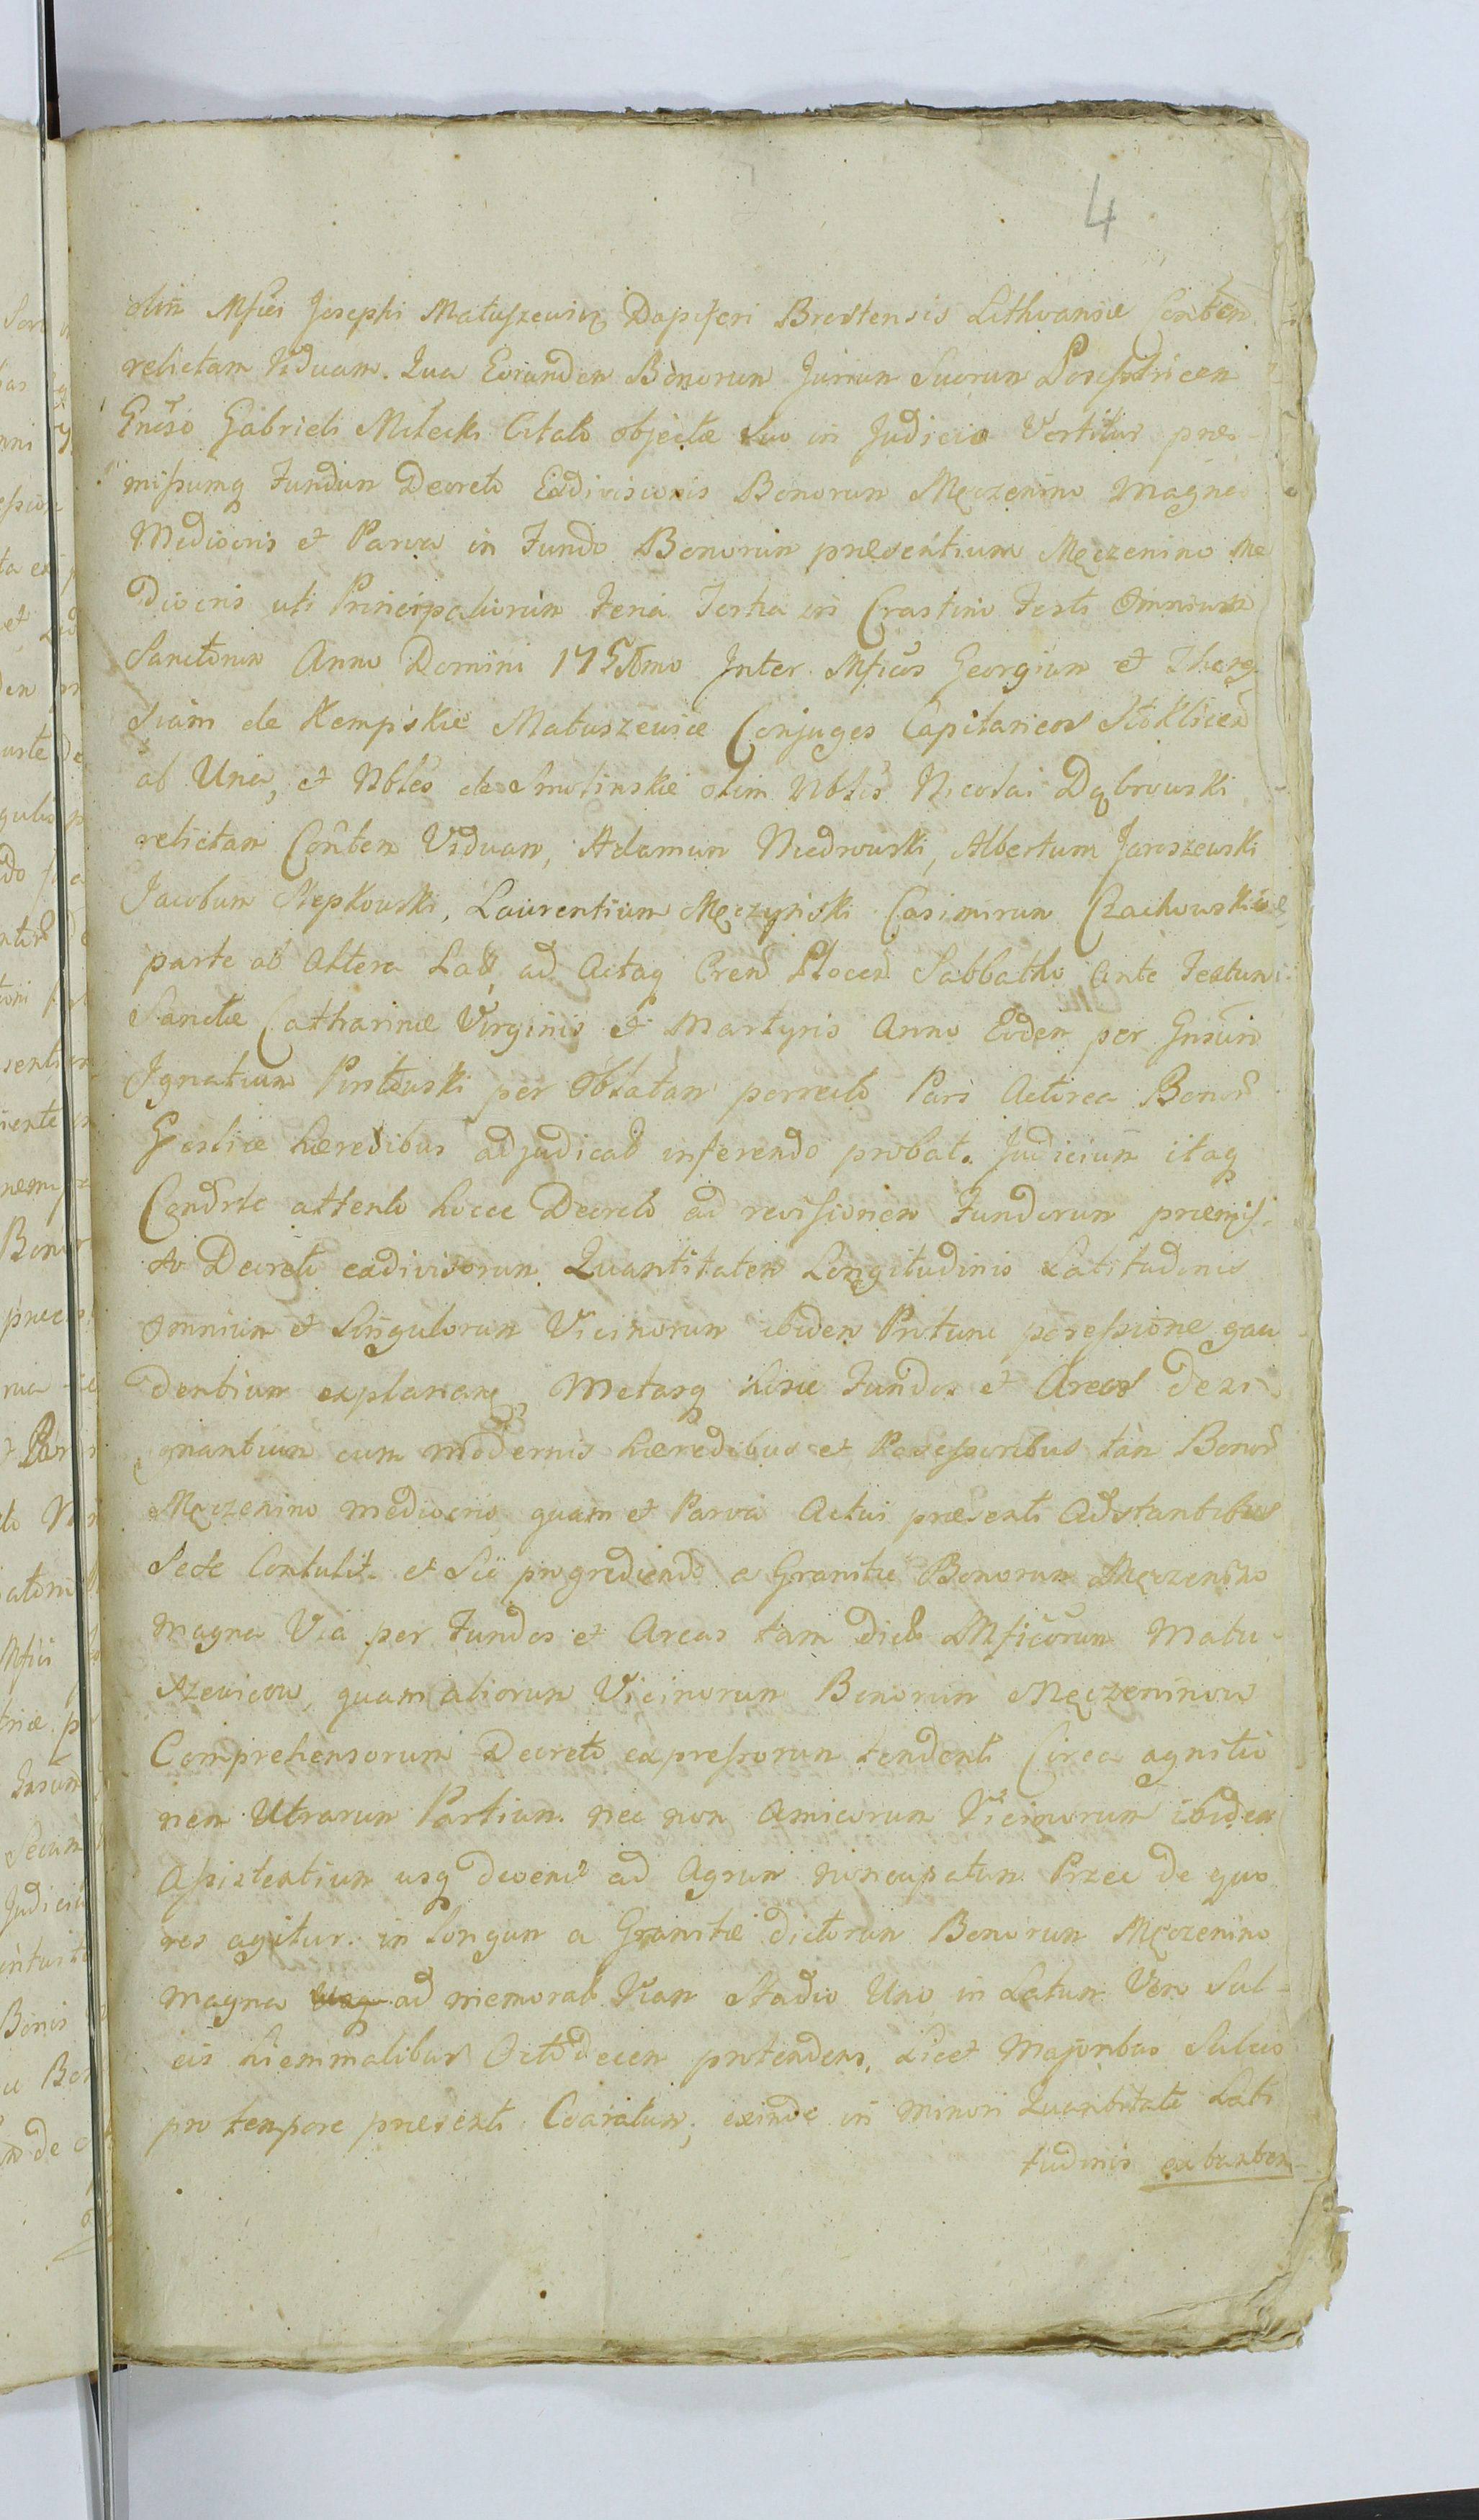 4
olim Mfici Josephi Matuszewicz Dapiferi Brestensis Lithvaniæ Conten
relictam Viduam. Qua Eorundem Bonorum Jurium Suorum Possessstricem
Gnoso Gabrieli Milecki Citato objectæ Suo in Judicio Vertitur præ-
missumq Fundum Decreto Exdivisionis Bonorum Męczenino Magna
Mediocris et Parva in Fundo Bonorum præsentium Męczenino Me
diocris uti Principaliorum Feria Tertia in Crastino Festi Omnium
Sanctorum Anno Domini Inter Mficos Georgium et There
siam de Kempskie Matuszewice Conjuges Capitaneos Stokliscen
ab Una, et Nbles de Smolinskie olim Nblis Nicolai Dąbrowski
relictam Conten Viduam, Adamum Niedrowski, Albertum Jaroszewski
Jacobum Mepkowski, Laurentium Męczynski Casimirum Czachowskie
parte ab Altera Lato, ad Actaq Cren Plocen Sabbatho Ante Festum
Sanctæ Catharinæ Virginis et Martyris Anno Eodem per Gnsum
Ignatium per Oblatam porrecto Pars Actorea Bonor
hæredibus adjudicat inferendo probat. Judicium itaq
Condrle attento hocce Decreto ad revisionem Fundorum præmis-
so Decreto exdivisorum Quantitatem Longitudinis Latitudinis
omnium et Singulorum Vicinorum ibidem possessione gau-
dentium explanan, Metasq hosce Fundos et Areas desi-
gnantium cum modernis hæredibus et Possessoribus tàm Bonor
Męczenino mediocris, quam et Parva Actui præsenti Adstantibus
Sese Contulit. et Sic progrediendo a Granitie Bonorum Męczenino
magna Via per Fundos et Areas tam dict Mficorum Matu-
szewicow, quam aliorum Vicinorum Bonorum Męczeninow
Comprehensorum Decreto expressorum tendenti Circa agnitio
nem Utrarum Partium. nec non Amicorum Vicinorum ibidem
Assistentium usq devenit ad Agrum nuncupatum Przec de quo
res agitur. in longum a Granitie dictorum Bonorum Męczenino
magna ad memorat Viam Stadio Uno in Latum Vero Sul-
cis hiemmalibus Octodecem protendens, Licet Majoribus Sulcis
pro tempore præsenti Coaratum, exinde in minori Quantitate Lati
tudinis extanten-